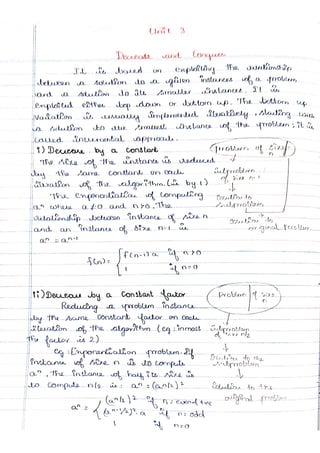 Unit 3
Decrease and Conquer
It is based on exploiting the relationship
between a solution to a given instances of a problem
and a solution to its smaller instances. It is
exploited either top down or bottom up. The bottom up
variation is usually implemented iteratively, starting with
a solution to the smallest instance of the problem; it is
called incremental approach.
1) Decrease by a constant
The size of the instance is reduced
by the same constant on each
iteration of the algorithm. (is by 1)
problem of size n
subproblem
of size n-1
The Exponentiation of computing
aⁿ where a≠0 and n>0. The
relationship between instance of size n
and an instance of size n-1 is
aⁿ = aⁿ⁻¹
Solution to
subproblem
Solution to
original problem
f(n) = { f(n-1) a if n>0
1 if n=0
ii) Decrease by a Constant factor
Reducing a problem instance
by the same constant factor on each
iteration of the algorithm (eg: inmost
the factor is 2)
Problem of size n
Subproblem
of size n/2
eg: Exponentiation problem. If
instance of size n is to compute
aⁿ, the instance of half its size is
to compute n/2 is : aⁿ = (a^n/2)²
Solution to the
subproblem
Solution to the
original problem
aⁿ = { (a^n/2)² if n: even & +ve
(a^n-1/2)². a if n: odd
1 if n=0